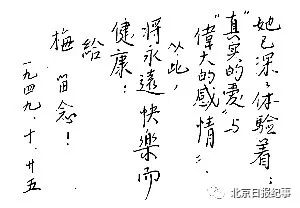 她已深々体驗着：
"真实的愛"与
"偉大的感情"。
从此，
將永遠快樂而
健康！
給
梅 留念！
一九四九、十、廿五
北京日报纪事